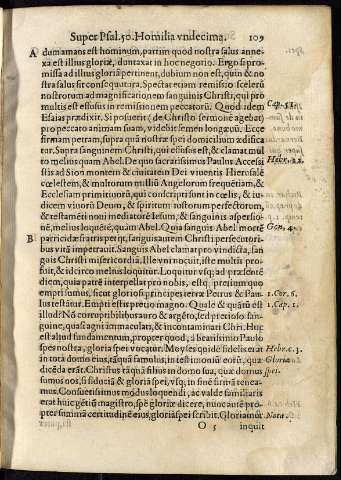 Super Psal. 50. Homilia vndecima. 109
A dum amans est hominum, partim quod nostra salus anne-
xa est illius gloriæ, duntaxat in hoc negotio. Ergo si pro-
missa ad illius gloriā pertinent, dubium non est, quin & no
stra salus sit consequutura. Spectat etiam remissio scelerū
nostrorum ad magnificationem sanguinis Christi, qui pro
multis est effusus in remissionem peccatorū. Quod idem
Esaias prædixit. Si posuerit (de Christo sermonē agebat) Cap. 53.
pro peccato animam suam, videbit semen longæuū. Ecce
firmam petram, supra quā nostræ spei domicilium ædifice
tur. Supra sanguinem Christi, qui effusus est, & clamat mul
to melius quam Abel. De quo sacratissimus Paulus: Accessi Hebr. 12.
stis ad Sion montem & ciuitatem Dei viuentis Hierusalē
cœlestem, & multorum millium Angelorum frequētiam, &
Ecclesiam primitiuorū, qui conscripti sunt in cœlis, & iu-
dicem viuorū Deum, & spiritum iustorum perfectorum,
& testamēti noui mediatorē Iesum, & sanguinis aspersio-
nē, melius loquētē, quàm Abel. Quia sanguis Abel mortē Gen. 4.
B parricidæ fratris petijt, sanguis autem Christi persecutori-
bus vitā imperauit. Sanguis Abel clamat pro vindicta, san
guis Christi misericordiā. Ille vni nocuit, iste multis pro-
fuit, & idcirco melius loquitur. Loquitur vsq; ad præsentē
diem, quia patrē interpellat pro nobis, estq; pretium quo
empti sumus, sicut gloriosi principes terræ Petrus & Pau- 1. Cor. 6.
lus testātur. Empti estis pretio magno. Quale & quātū est 1. Cap. 1.
illud? Nō corruptibilibus auro & argēto, sed pretioso san-
guine, quasi agni immaculati, & incontaminati Chri. Huc
est aliud fundamentum, propter quod, à beatissimo Paulo
spes nostra, gloria spei vocatur. Moyses quide fidelis erat Hebr. c. 3.
in tota domo eius, tāquā famulus, in testimoniū eorū, quæ Gloria
dicēda erāt. Christus tāquā filius in domo sua, quæ domus spei.
sumus nos, si fiduciā & gloriā spei, vsq; in finē firmā tenea-
mus. Consuetissimus modus loquendi, ac valde familiaris
erat huic gētiū magistro, spē gloriæ dicere, nunc autē pro-
pter summā certitudinē eius, gloriā spei scribit. Gloriamur Nota.
O 5 inquit